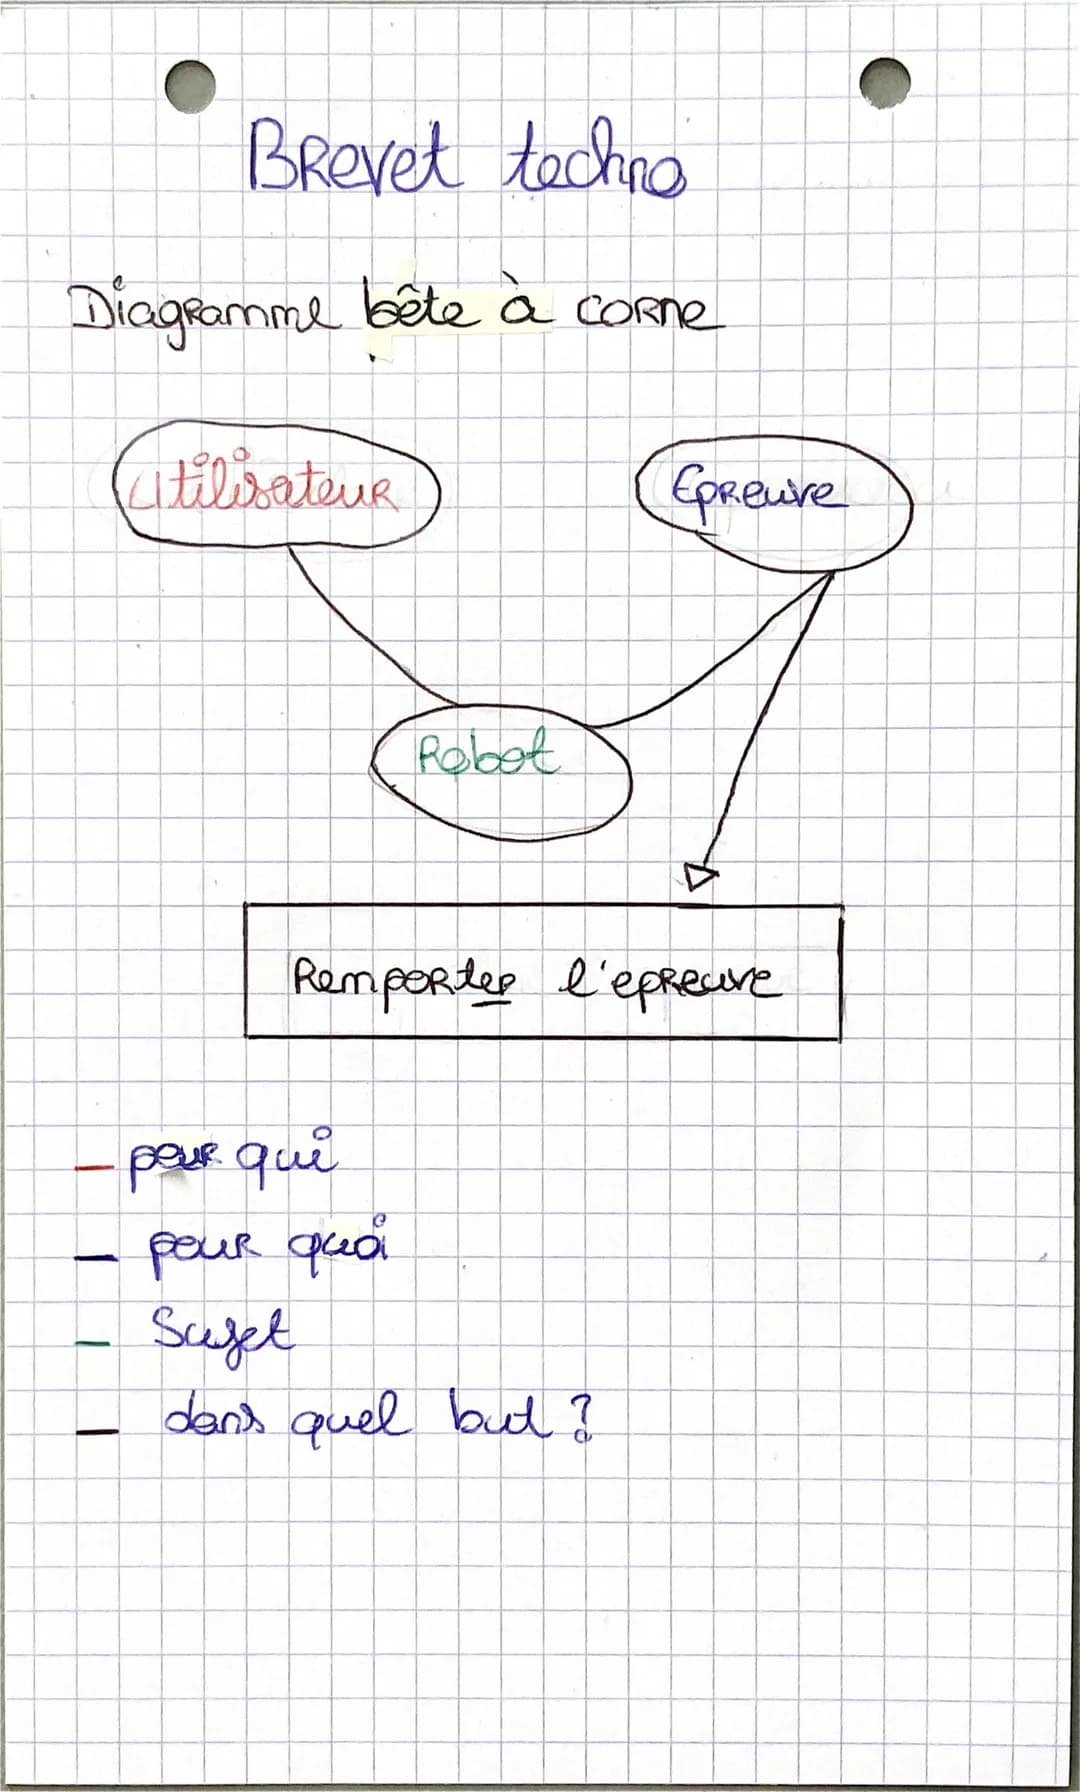 Brevet techno
Diagramme bête à corne
Utilisateur
Epreuve
Robot
Remporter l'epreuve
- pour qui
- pour quoi
- Sujet
- dans quel but ?